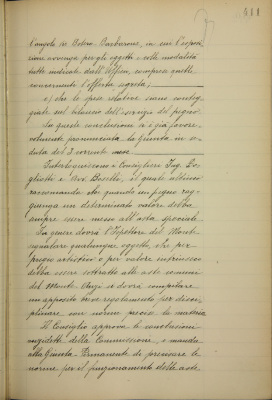 l'angolo di Asteno Barbarano, in cui l'esposi-
zione avvenga per gli oggetti e colle modalità
tutte indicate dall'Ufficio, compresa quella
concernente l'offerta segreta;
e) che le spese relative siano conteg-
giate sul bilancio dell'esercizio del pegno.
Su queste conclusioni si è già favore-
volmente pronunciata la Giunta in se-
duta del 3 corrente mese
Interloquiscono i Consiglieri Ing.
e Avv. Boselli, il quale ultimo
raccomanda che quando un pegno rag-
giunga un determinato valore debba
sempre esser messo all'asta speciale.
In genere dovrà l'Ispettore del Monte
segnalare qualunque oggetto, che per
pregio artistico o per valore intrinseco
debba essere sottratto alle aste comuni
del Monte. Anzi si dovrà compilare
un apposito breve regolamento per disci-
plinare con norme precise la materia
Il Consiglio approva le conclusioni
suddette della Commissione, e manda
alla Giunta Permanente di precisare le
norme per il funzionamento delle aste